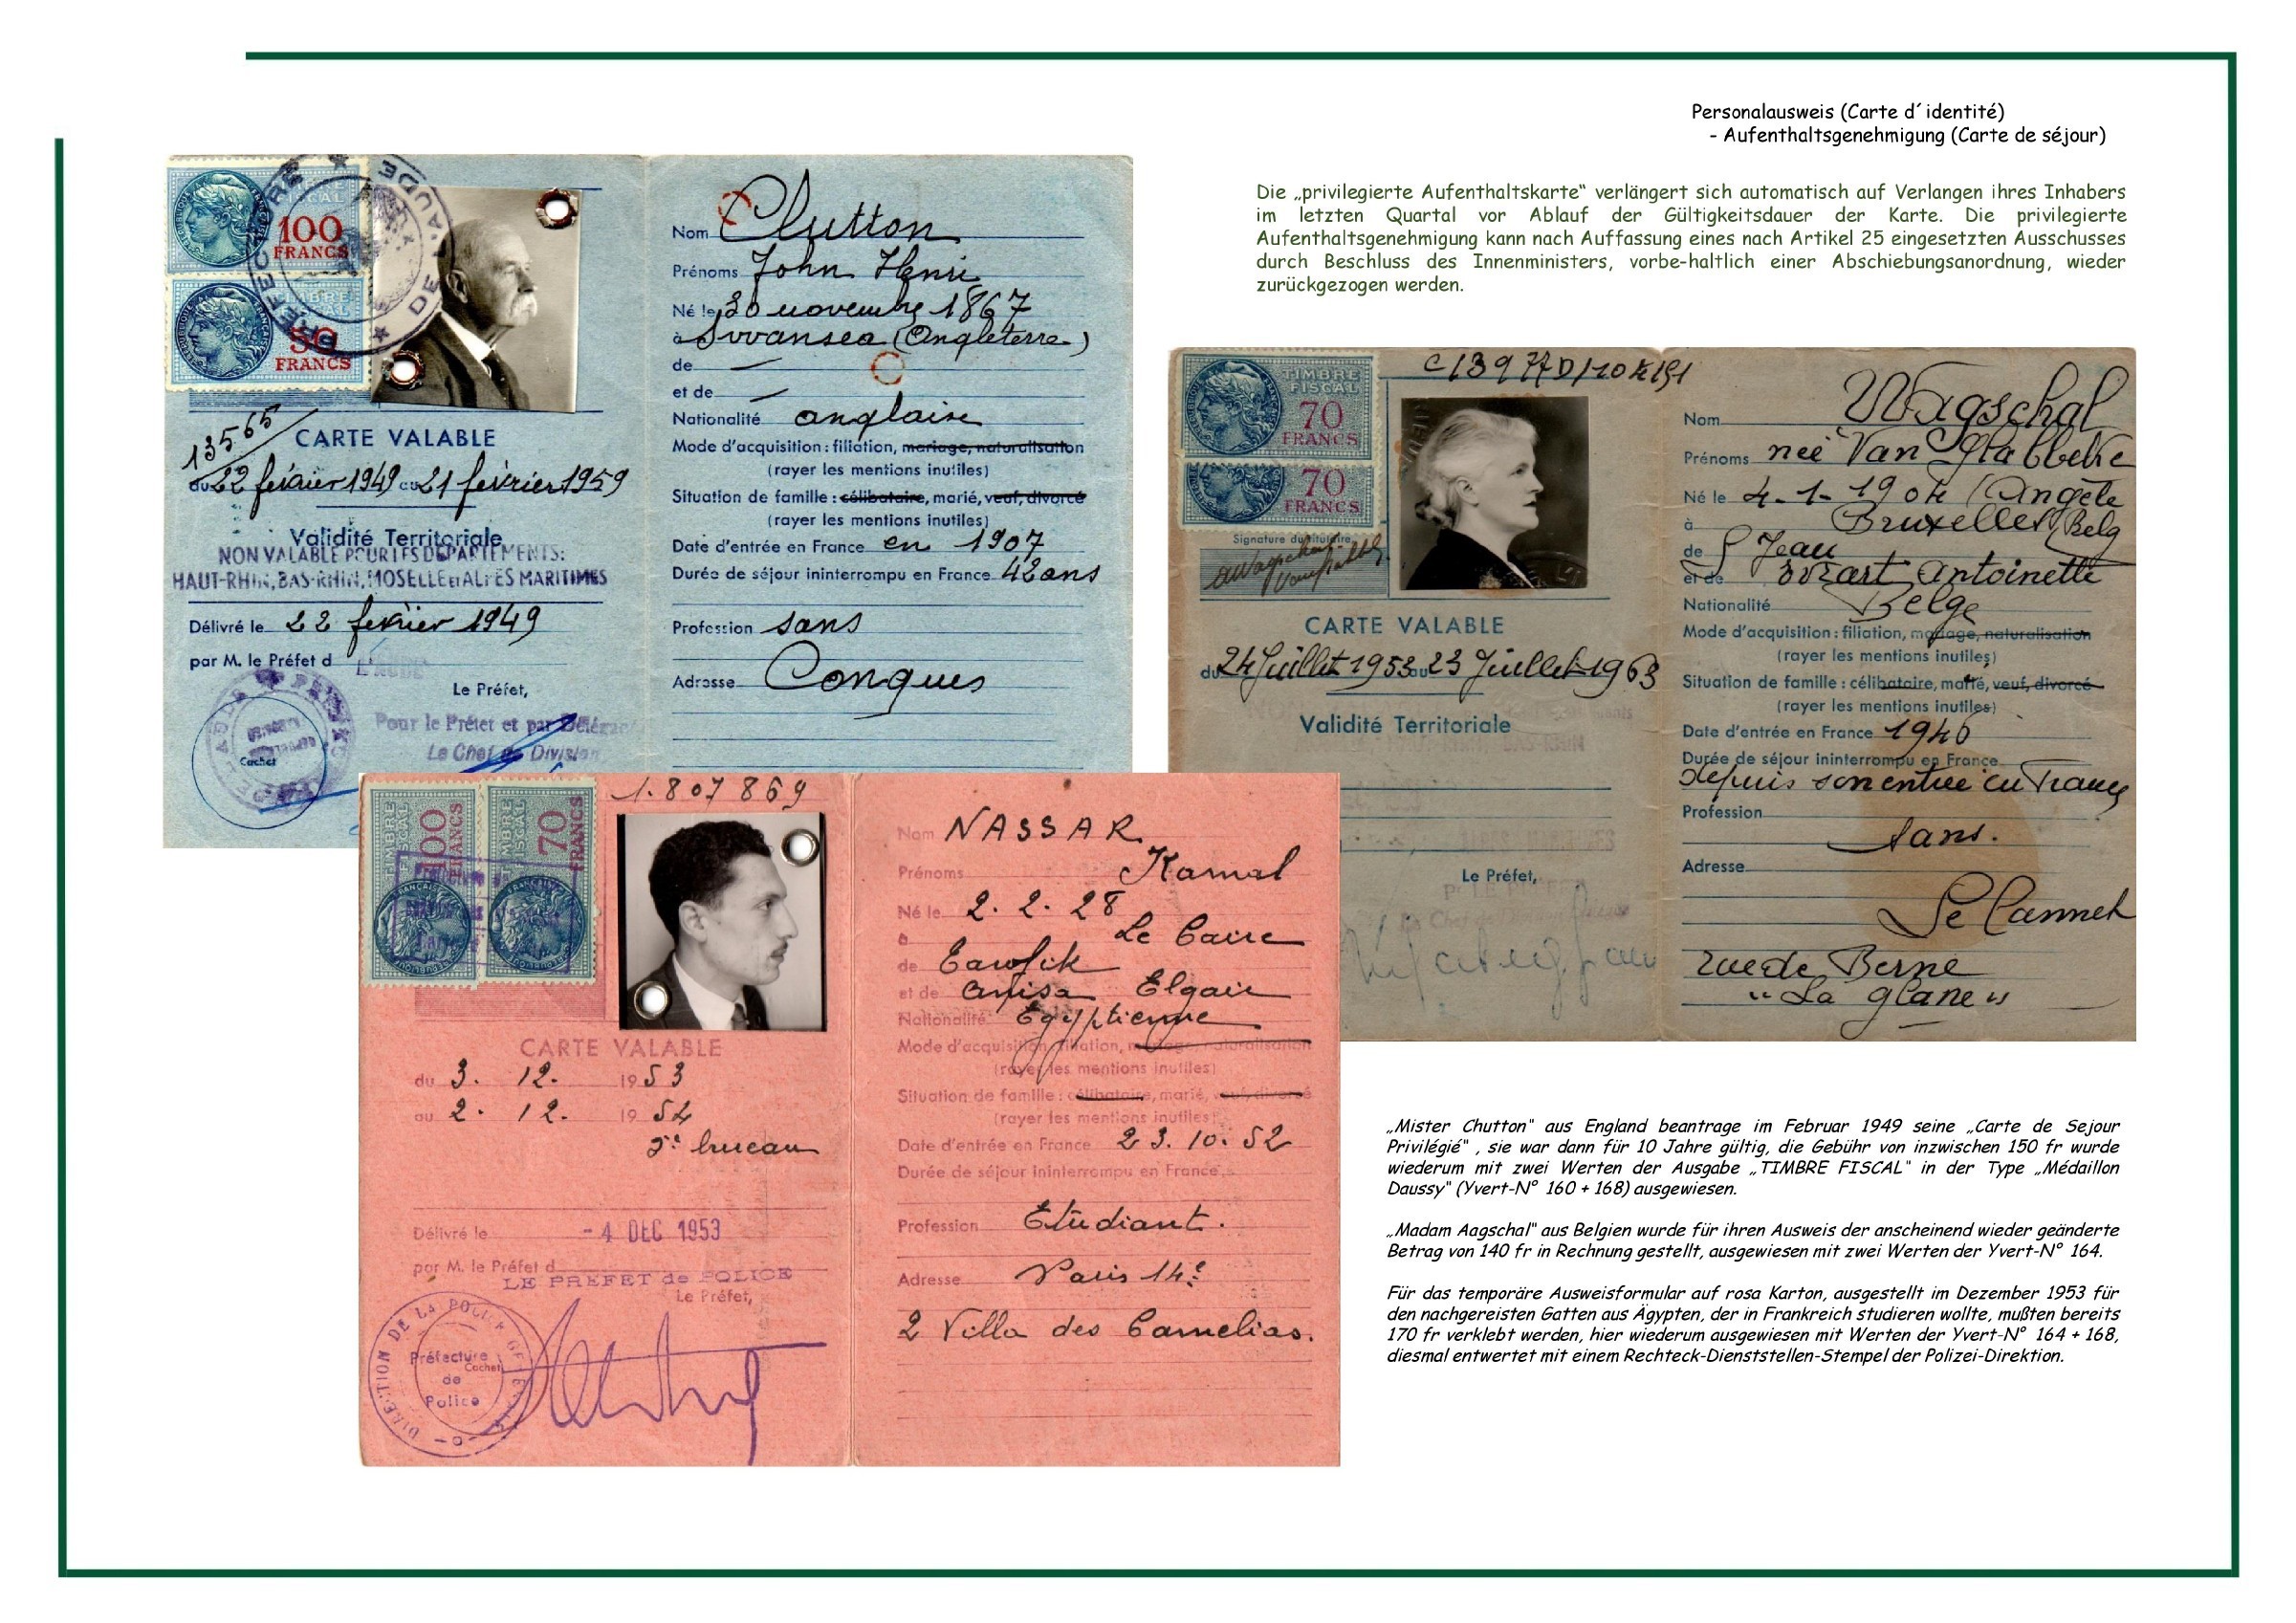 Personalausweis (Carte d´identité)
- Aufenthaltsgenehmigung (Carte de séjour)
Die „privilegierte Aufenthaltskarte“ verlängert sich automatisch auf Verlangen ihres Inhabers
im letzten Quartal vor Ablauf der Gültigkeitsdauer der Karte. Die privilegierte
Aufenthaltsgenehmigung kann nach Auffassung eines nach Artikel 25 eingesetzten Ausschusses
durch Beschluss des Innenministers, vorbe-haltlich einer Abschiebungsanordnung, wieder
zurückgezogen werden.
100
FRANCS
50
FRANCS
PREFECTURE DE L'AUDE
13565
CARTE VALABLE
du 22 février 1949 au 21 février 1959
Validité Territoriale
NON VALABLE POUR LES DÉPARTEMENTS:
HAUT-RHIN, BAS-RHIN, MOSELLE et ALPES MARITIMES
Délivré le 22 février 1949
par M. le Préfet d L'AUDE
Le Préfet,
Pour le Préfet et par
Le Chef de Division
Cachet
Nom Clutton
Prénoms John Henri
Né le 30 novembre 1867
à Swansea (Angleterre)
de —
et de —
Nationalité anglaise
Mode d'acquisition : filiation, mariage, naturalisation
(rayer les mentions inutiles)
Situation de famille : célibataire, marié, veuf, divorcé
(rayer les mentions inutiles)
Date d'entrée en France en 1907
Durée de séjour ininterrompu en France 42 ans
Profession sans
Adresse Conques
TIMBRE
FISCAL
70
FRANCS
70
FRANCS
Signature du titulaire,
CARTE VALABLE
du 24 Juillet 1953 au 23 Juillet 1963
Validité Territoriale
Le Préfet,
Nom Wagschal
Prénoms née Van Glabbeke
Né le 4-1-1904 (Angèle
à Bruxelles Belg
de Jean
et de Antoinette
Nationalité Belge
Mode d'acquisition : filiation, mariage, naturalisation
(rayer les mentions inutiles)
Situation de famille : célibataire, marié, veuf, divorcé
(rayer les mentions inutiles)
Date d'entrée en France 1946
Durée de séjour ininterrompu en France
depuis son entrée en France
Profession
sans.
Adresse
Le Cannet
rue de Berne
"La glane"
TIMBRE
FISCAL
100
FRANCS
TIMBRE
FISCAL
70
FRANCS
1.807869
CARTE VALABLE
du 3. 12. 1953
au 2. 12. 1954
5e bureau
Délivré le - 4 DEC 1953
par M. le Préfet d
LE PREFET de POLICE
Le Préfet,
Préfecture
Cachet
de
Police
Nom NASSAR
Prénoms Kamal
Né le 2. 2. 28
à Le Caire
de Tawfik
et de Anisa Elgair
Nationalité Egyptienne
Mode d'acquisition : filiation, mariage, naturalisation
(rayer les mentions inutiles)
Situation de famille : célibataire, marié, veuf, divorcé
(rayer les mentions inutiles)
Date d'entrée en France 23. 10. 52
Durée de séjour ininterrompu en France
Profession Etudiant.
Adresse Paris 14e
2 Villa des Camelias.
„Mister Chutton“ aus England beantrage im Februar 1949 seine „Carte de Sejour
Privilégié“ , sie war dann für 10 Jahre gültig, die Gebühr von inzwischen 150 fr wurde
wiederum mit zwei Werten der Ausgabe „TIMBRE FISCAL“ in der Type „Médaillon
Daussy“ (Yvert-N° 160 + 168) ausgewiesen.
„Madam Aagschal“ aus Belgien wurde für ihren Ausweis der anscheinend wieder geänderte
Betrag von 140 fr in Rechnung gestellt, ausgewiesen mit zwei Werten der Yvert-N° 164.
Für das temporäre Ausweisformular auf rosa Karton, ausgestellt im Dezember 1953 für
den nachgereisten Gatten aus Ägypten, der in Frankreich studieren wollte, mußten bereits
170 fr verklebt werden, hier wiederum ausgewiesen mit Werten der Yvert-N° 164 + 168,
diesmal entwertet mit einem Rechteck-Dienststellen-Stempel der Polizei-Direktion.